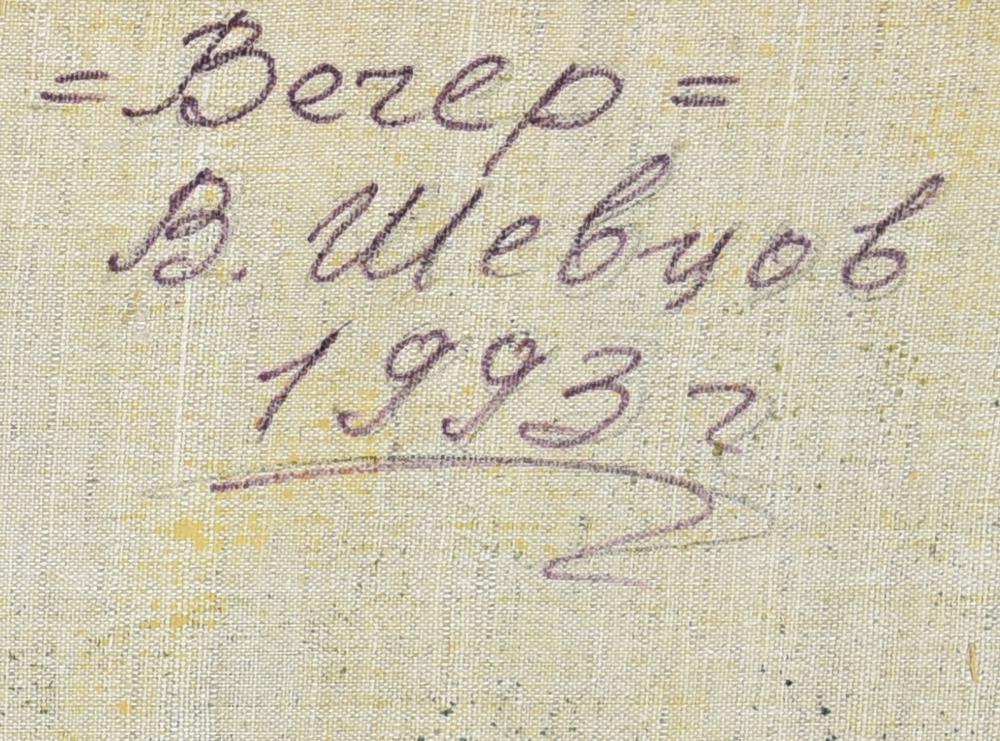 = Вечер =
В. Шевцов
1993 г